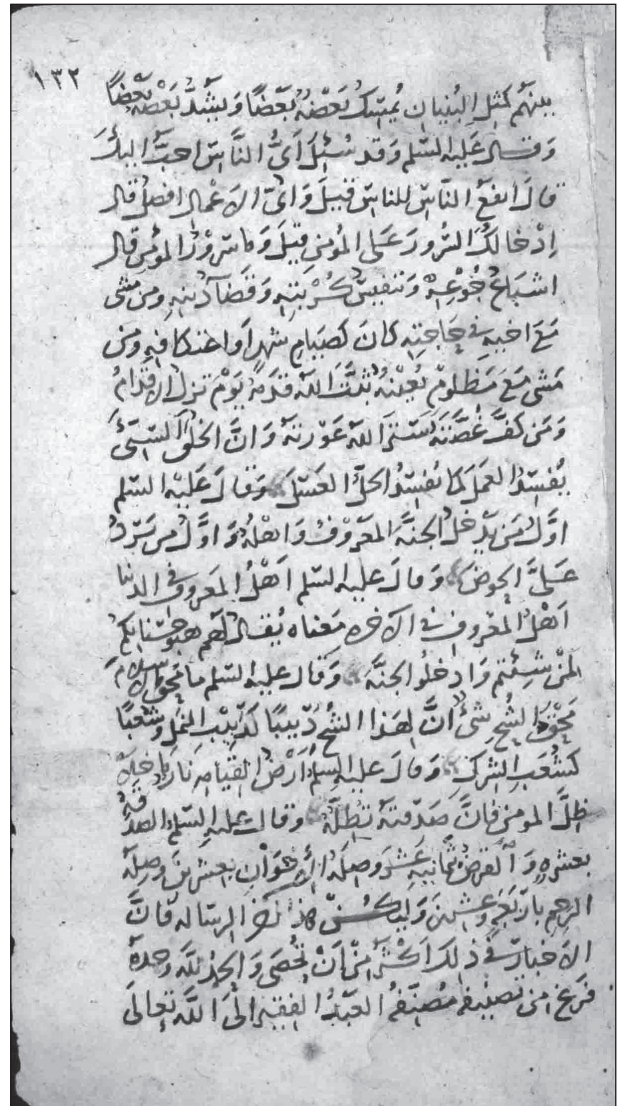 ١٣٢
بينهم كمثل البنيان يُمسك بَعْضه بَعضًا وَيشُدّ بَعْضه بَعْضًا
وَقال عَليه السّلم وَقد سُئِلَ اَىُّ النَّاسِ احبُّ اليك
قالَ انفعُ النّاسِ للناسِ قيلَ وَاىّ الاَعْمال افضلُ قال
اِدْخالكَ السُّرورَ عَلى المؤمنِ قيلَ وَمَا سُرُوْرُ المؤمنِ قال
اشبَاعُ جُوْعِهِ وَتنفيسُ كُرْبتِهِ وَقضآ دَينِهِ وَمن مشى
مَعَ اخيهِ فى حَاجتِه كانَ كصِيَامِ شهرٍ اَوا عتكافهِ وَمَن
مَشى مَعَ مَظلومٍ يُعِيْنُهُ ثبّتَ اللهُ قدَمَهُ يَوْمَ تزلُ الاَقدَامُ
وَمَن كَفَّ غَضَبَهُ سَتَرَ اللهُ عَوْرتهُ وَانَّ الخلقَ السّيّئَ
يُفسِدُ العَمَلَ كمَا يُفسِدُ الخلُّ العَسَلَ وَقالَ عَليْهِ السّلم
اوّلُ مَن يَدْخلُ الجنّةَ المعَروْفُ وَاهْلُهُ وَاوّلُ من يَرِدُ
عَلىَّ الحوضَ وَقالَ عَليه السّلم اَهْلُ المعَروفِ فى الدنيا
اَهْلُ المعْروفِ فى الاخره مَعناه يُقالُ لهم هبو حَسَناتِكم
لمَنْ شِئتم وَادخلُوا الجنّةَ وَقالَ عليهِ السّلم ما محَق الاسلامَ
مَحْقَ الشُّحِ شئ انَّ لِهَذا الشُّحِ دَبيبًا كدَبيْبِ النملِ وَشعَبًا
كشُعَبِ الشركِ وَقالَ عليهِ السلم اَرْضُ القيامهِ نارٌ مَا خلا
ظِلَّ المومنِ فانَّ صَدَقتهُ تُظِلّهُ وقالَ عليهِ السّلم الصدَقةُ
بعشرهٍ وَالقرضُ بثمَانيهِ عَشَرَ وَصِلَةُ الاِخوَانِ بعشرينَ وَصِلةُ
الرحِمِ بارْبَعَةٍ وَعشرينَ وَليكُنْ هَذا اخر الرسَاله فانَّ
الاَخبارَ فى ذلكَ اكثرُ مِنْ اَنْ تُحصَى وَالحمدُ للهِ وحدَهُ
فرَغ من تصنيفِهِ مُصنّفُهُ العَبدُ الفقير الى اللهِ تعَالَى